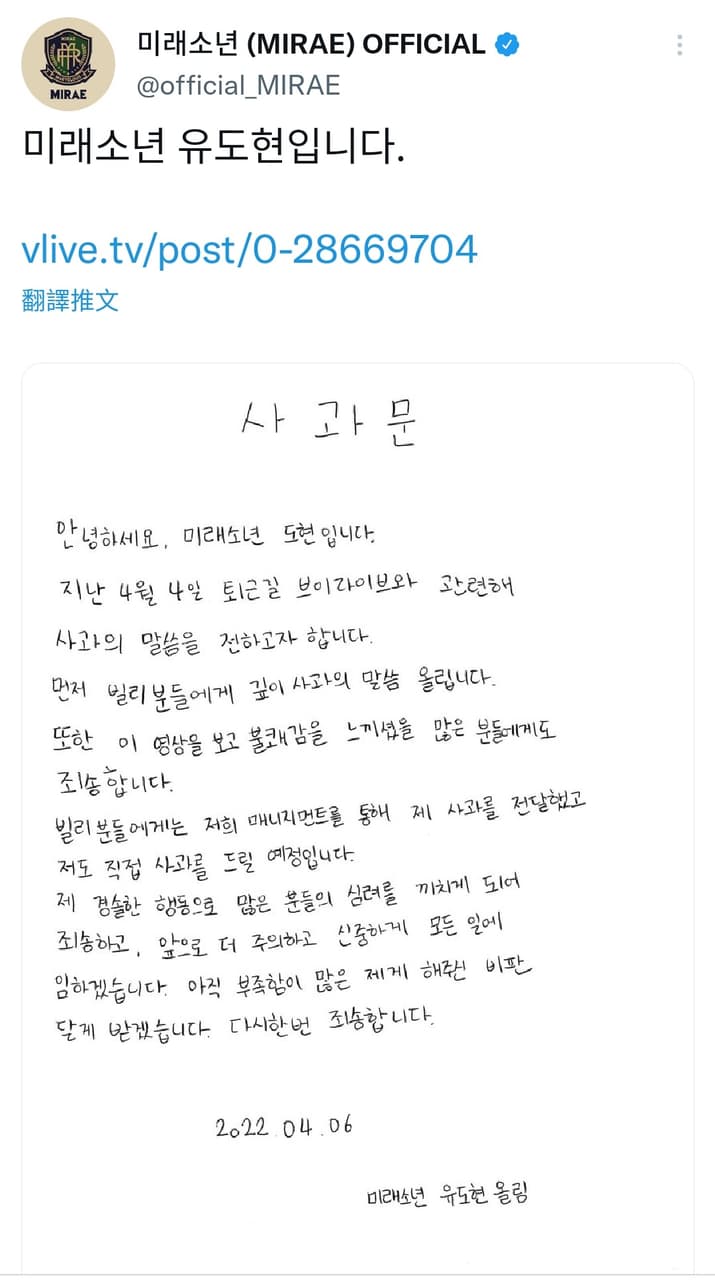 미래소년 (MIRAE) OFFICIAL
@official_MIRAE
MIRAE
미래소년 유도현입니다.
vlive.tv/post/0-28669704
翻譯推文
사과문
안녕하세요, 미래소년 도현입니다.
지난 4월 4일 퇴근길 브이라이브와 관련해
사과의 말씀을 전하고자 합니다.
먼저 빌리분들에게 깊이 사과의 말씀 올립니다.
또한 이 영상을 보고 불쾌감을 느끼셨을 많은 분들에게도
죄송합니다.
빌리분들에게는 저희 매니지먼트를 통해 제 사과를 전달했고
저도 직접 사과를 드릴 예정입니다.
제 경솔한 행동으로 많은 분들의 심려를 끼치게 되어
죄송하고, 앞으로 더 주의하고 신중하게 모든 일에
임하겠습니다. 아직 부족함이 많은 제게 해주신 비판
달게 받겠습니다. 다시한번 죄송합니다.
2022.04.06
미래소년 유도현 올림